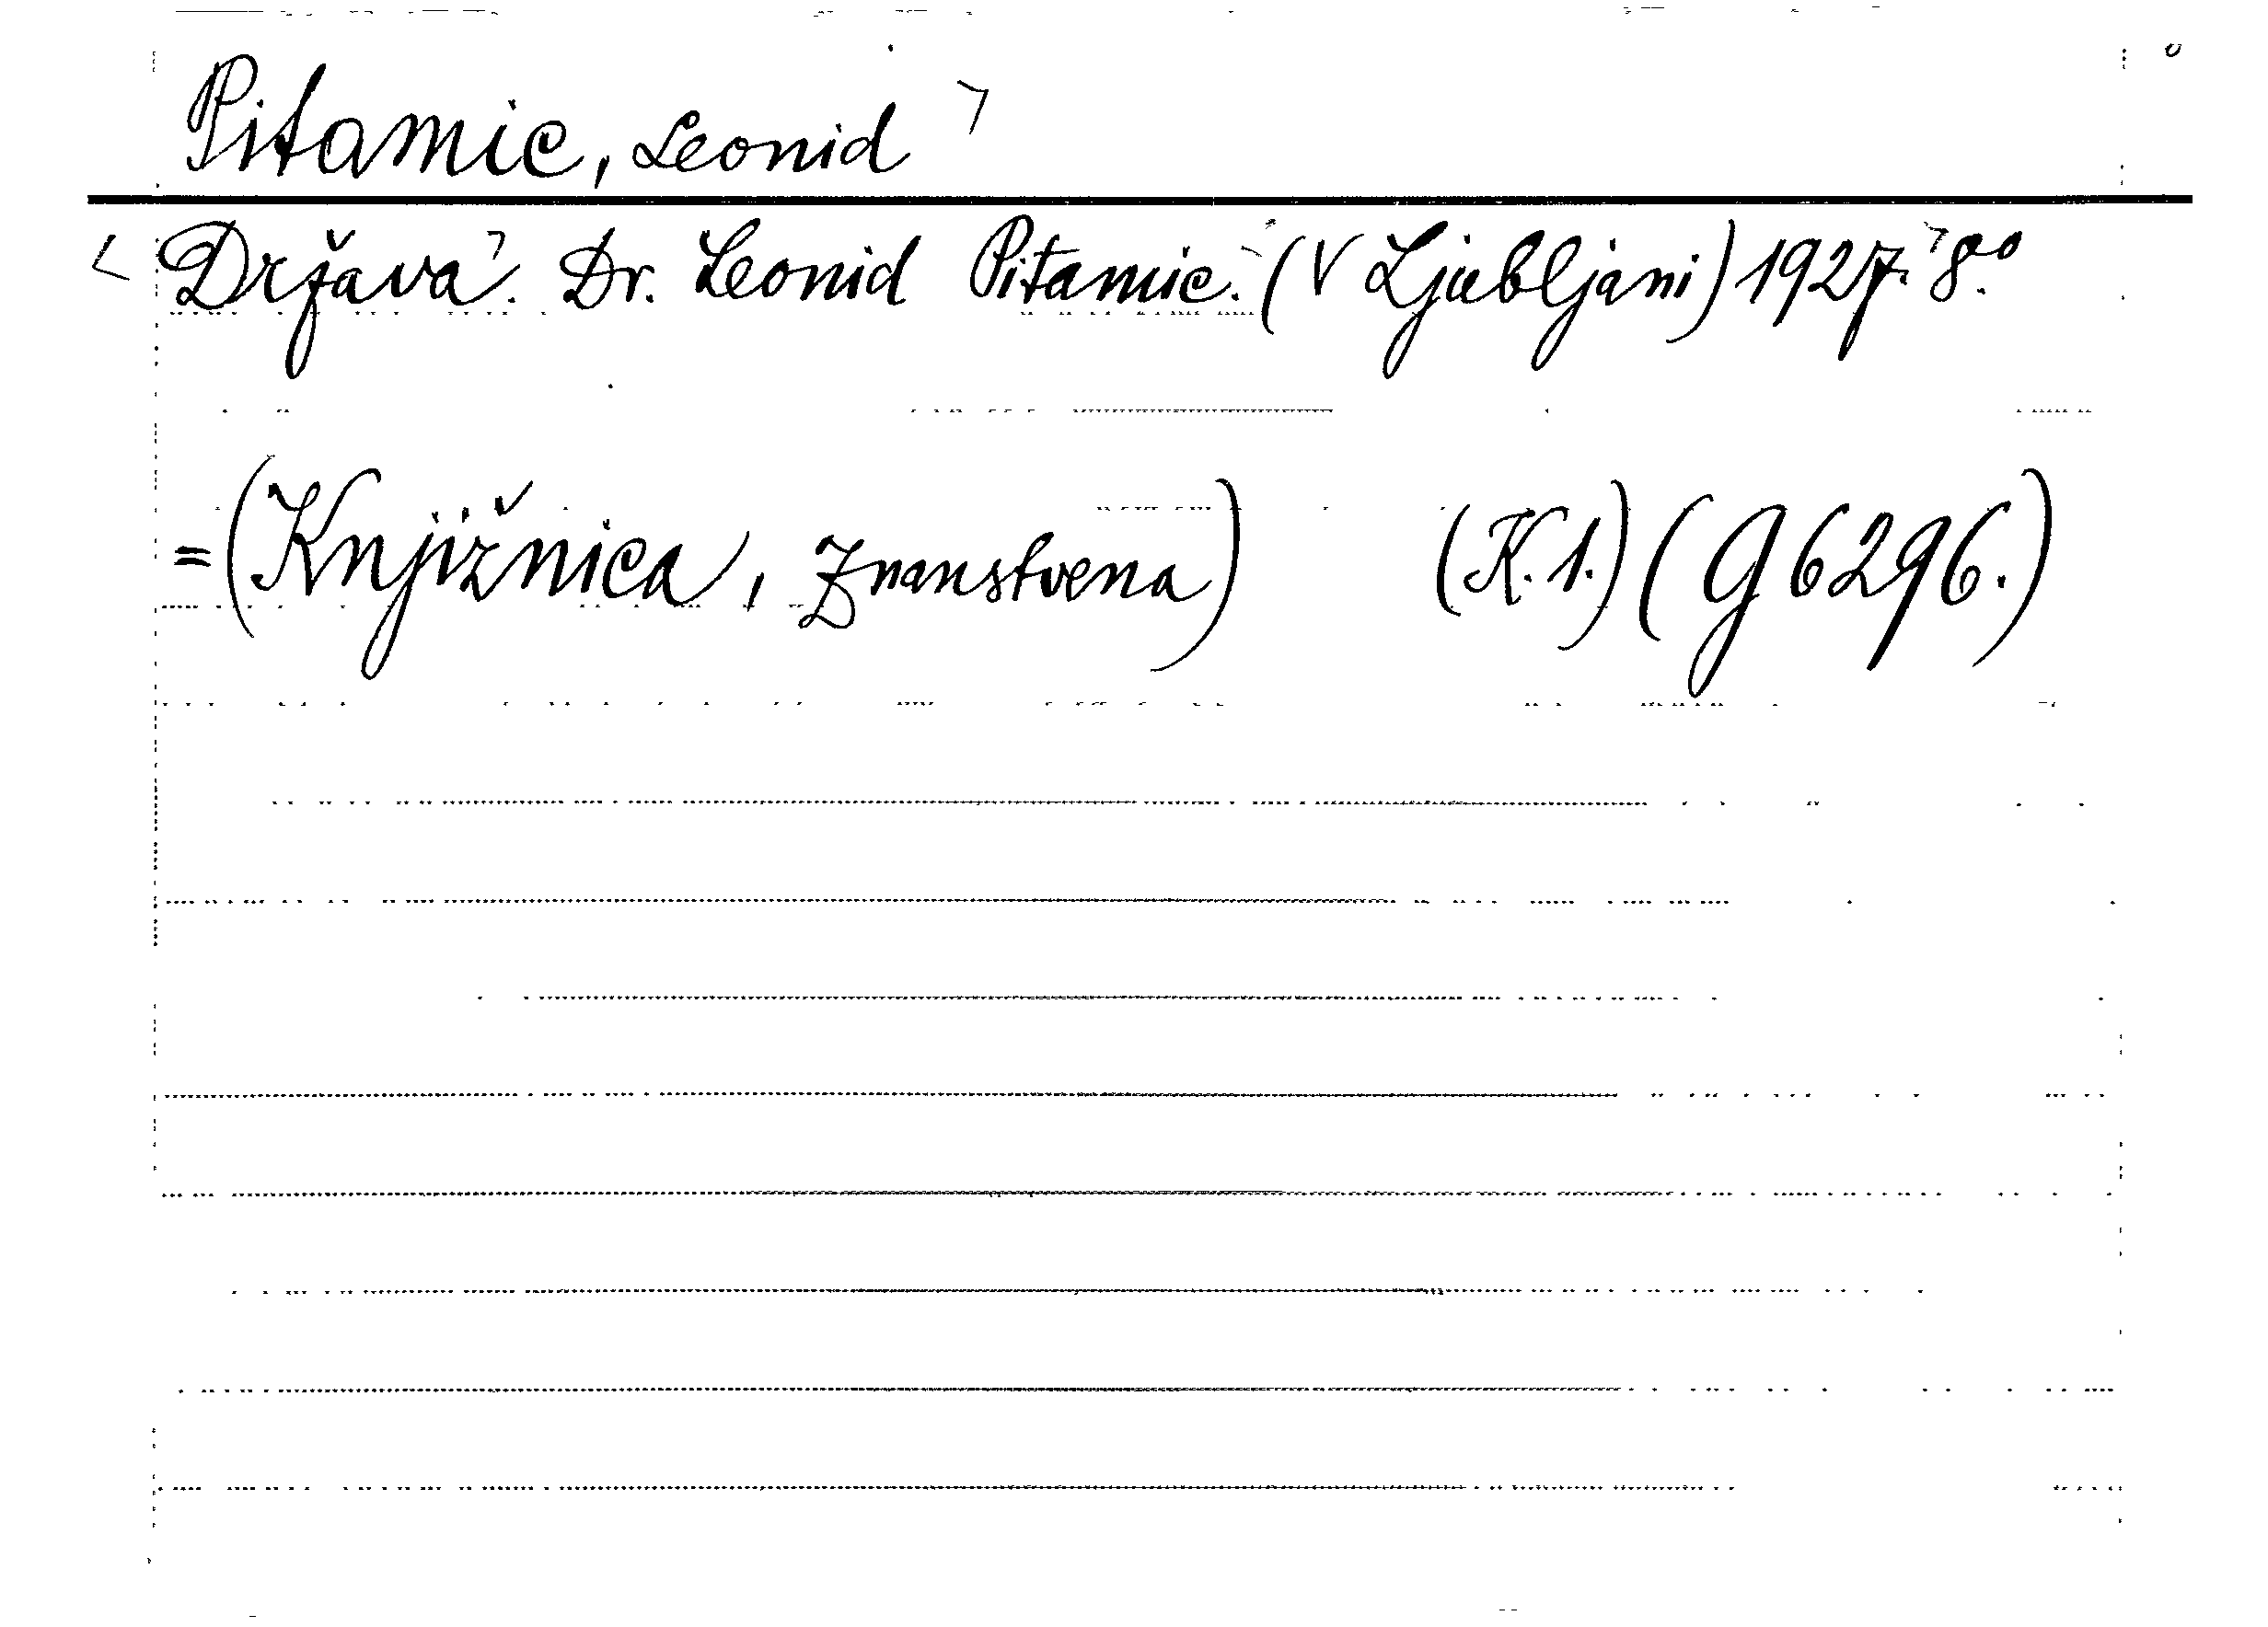 Pitamic, Leonid
Država. Dr. Leonid Pitamic. (V Ljubljani) 1927. 8°.
=(Knjižnica, Znanstvena) (K. 1.) (G 6296.)